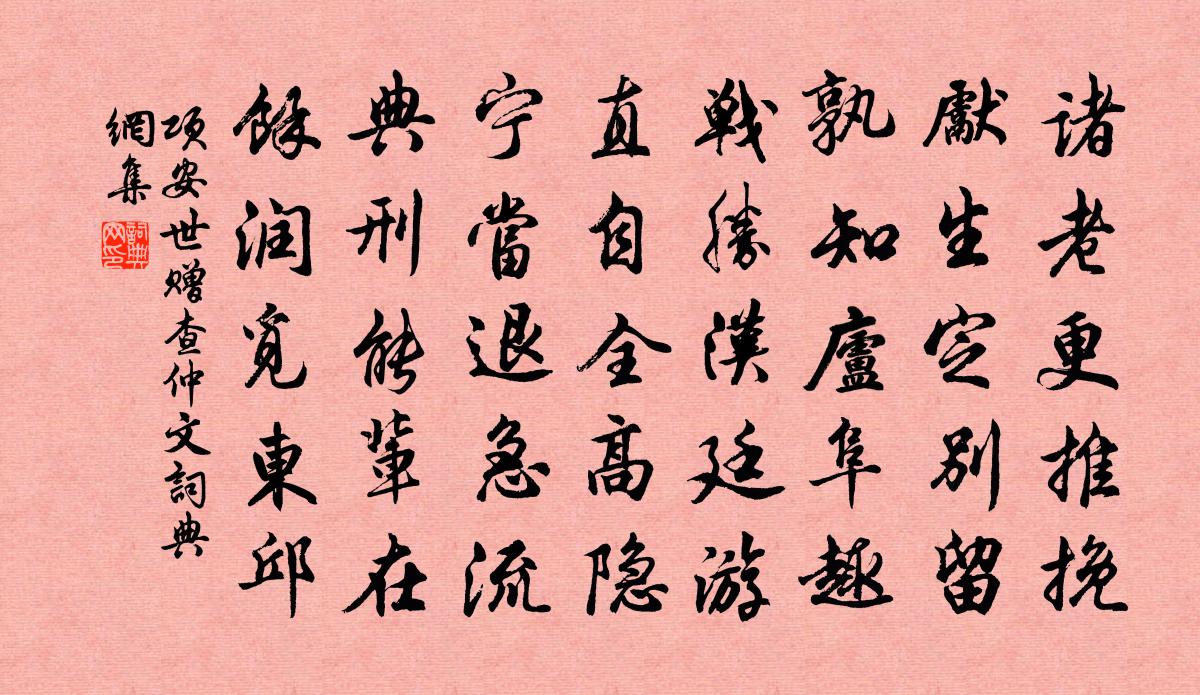 諸老更推挽
獻生定別留
孰知廬阜趣
戰勝漢廷游
直自全高隐
宁當退急流
典刑能輩在
餘润觅東邱
项安世赠查仲文詞典
網集
詞典網印